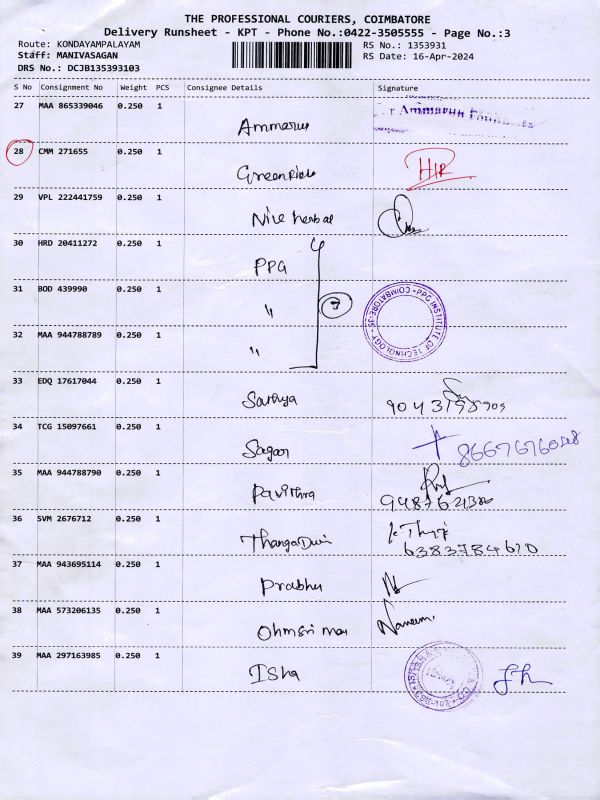 THE PROFESSIONAL COURIERS, COIMBATORE
Delivery Runsheet - KPT - Phone No.:0422-3505555 - Page No.:3
Route: KONDAYAMPALAYAM RS No.: 1353931
Staff: MANIVASAGAN RS Date: 16-Apr-2024
DRS No.: DCJB135393103
S No Consignment No Weight PCS Consignee Details Signature
27 MAA 865339046 0.250 1 Ammarun Ammarun
28 CMM 271655 0.250 1
29 VPL 222441759 0.250 1 Nice herbal
30 HRD 20411272 0.250 1 PPG
31 BOD 439990 0.250 1 " PPG INSTITUTE OF TECHNOLOGY COIMBATORE-35
32 MAA 944788789 0.250 1 "
33 EDQ 17617044 0.250 1 Sathya
34 TCG 15097661 0.250 1 Sagar
35 MAA 944788790 0.250 1 Pavithra
36 SVM 2676712 0.250 1 6383784610
37 MAA 943695114 0.250 1 Prabhu
38 MAA 573206135 0.250 1 Ohmsri
39 MAA 297163985 0.250 1 Isha